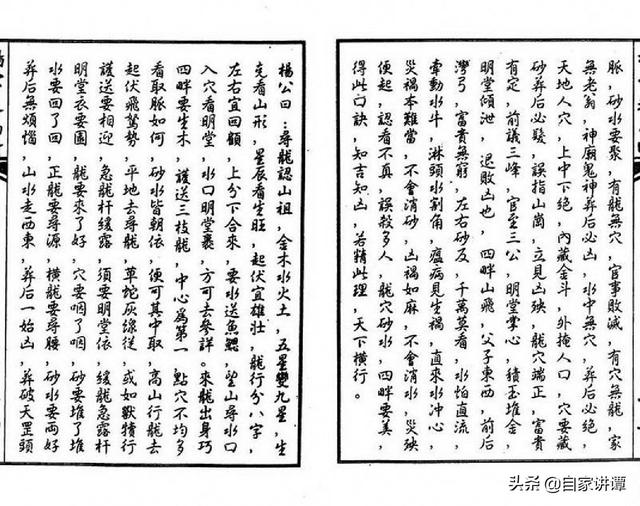 脈,砂水要聚,有龍無穴,官事敗滅,有穴無龍,家
無老翁,神廟鬼神葬后必凶,水中無穴,葬后必絕,
天地人穴 上中下絕,內藏金斗,外掩人口,穴要藏
砂葬后必發,誤指山崗,立見凶殃,龍穴端正,富貴
有定,前議三峰,官至三公,明堂掌心,積玉堆金,
明堂傾泄,退敗凶也,四畔山飛,父子東西,前后
灣弓,富貴無窮,左右砂反,千萬莫看,水怕直流,
牽動水牛,淋頭水割角,瘟病見生禍,直來水冲心,
災禍本難當,不會消砂 凶禍如麻,不會消水,災殃
便起,認看不真,誤殺多人,龍穴砂水,四畔要美,
得此口訣,知吉知凶,若精此理,天下橫行。
楊公曰:尋龍認山祖,金木水火土,五星變九星,生
克看山形,星辰看生旺,起伏宜雄壯,龍行分八字,
左右宜回顧,上分下合來,要水送魚鰓,望山尋水口
入穴看明堂,水口明堂裹,方可去參詳。來龍出身巧
四畔要生木,護送三枝龍,中心為第一 點穴不均多
看取脈如何,砂水皆朝依,便可其中取,高山行龍去
起伏飛鸞勢,平地去尋龍,草蛇灰線從,或如獸犢行
護送要相迎,急龍杆緩露,須要明堂依 緩龍急露杆
明堂衣要圓,龍要來了好,穴要咽了咽,砂要堆了堆
水要回了回,正龍要尋源,橫龍要尋腰,砂水要兩好
葬后無煩惱,山水走西東,葬后一始凶,葬破天罡頭
头条 @自家讲谭